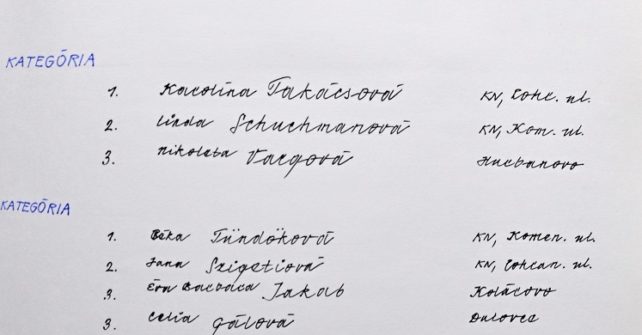 KATEGÓRIA
1. Karolína Takácsová KN, Rohr. ul.
2. Linda Schuchmanová KN, Kom. ul.
3. Nikoleta Vargová Hurbanovo
KATEGÓRIA
1. Réka Tündöková KN, Komen. ul.
2. Jana Szigetiová KN, ul.
3. Éva Barbara Jakab Kolárovo
3. Celia Gálová Dulovce